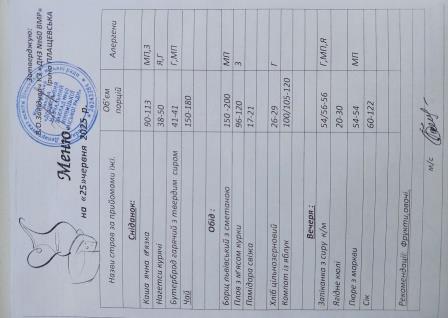 Затверджую:
В.О.Завідувач КЗ «ДНЗ №60 ВМР»
Ірина ПЛАЩЕВСЬКА
Меню
на «25»червня 2025 р.
Назви страв за прийомами їжі. Об'єм порцій Алергени
Сніданок:
Каша ячна в'язка 90-113 МП,З
Накетси курячі 38-50 Я,Г
Бутерброд гарячий з твердим сиром 41-41 Г,МП
Чай 150-180
Обід :
Борщ львівський з сметаною 150 -200 МП
Плов з м'ясом курки 96-120 З
Помідора свіжа 17-21
Хліб цільнозерновий 26-29 Г
Компот із яблук 100/105-120
Вечеря :
Запіканка з сиру к/м 54/56-56 Г,МП,Я
Ягідне кюлі 20-30
Пюре з моркви 54-54 МП
Сік 60-122
Рекомендації: Фрукти,овочі.
м/с